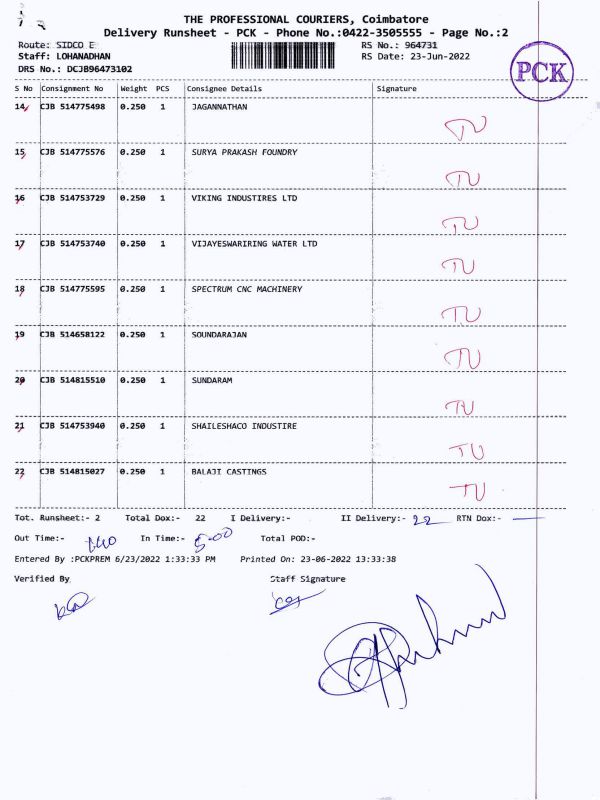 THE PROFESSIONAL COURIERS, Coimbatore
Delivery Runsheet - PCK - Phone No.:0422-3505555 - Page No.:2
Route: SIDCO E RS No.: 964731
Staff: LOHANADHAN RS Date: 23-Jun-2022
DRS No.: DCJB96473102
PCK
S No Consignment No Weight PCS Consignee Details Signature
14 CJB 514775498 0.250 1 JAGANNATHAN
TU
15 CJB 514775576 0.250 1 SURYA PRAKASH FOUNDRY
TU
16 CJB 514753729 0.250 1 VIKING INDUSTIRES LTD
TU
17 CJB 514753740 0.250 1 VIJAYESWARIRING WATER LTD
TU
18 CJB 514775595 0.250 1 SPECTRUM CNC MACHINERY
TU
19 CJB 514658122 0.250 1 SOUNDARAJAN
TU
20 CJB 514815510 0.250 1 SUNDARAM
TU
21 CJB 514753940 0.250 1 SHAILESHACO INDUSTIRE
TU
22 CJB 514815027 0.250 1 BALAJI CASTINGS
TU
Tot. Runsheet:- 2 Total Dox:- 22 I Delivery:- II Delivery:- 22 RTN Dox:-
Out Time:- In Time:- 5-00 Total POD:-
Entered By :PCKPREM 6/23/2022 1:33:33 PM Printed On: 23-06-2022 13:33:38
Verified By Staff Signature